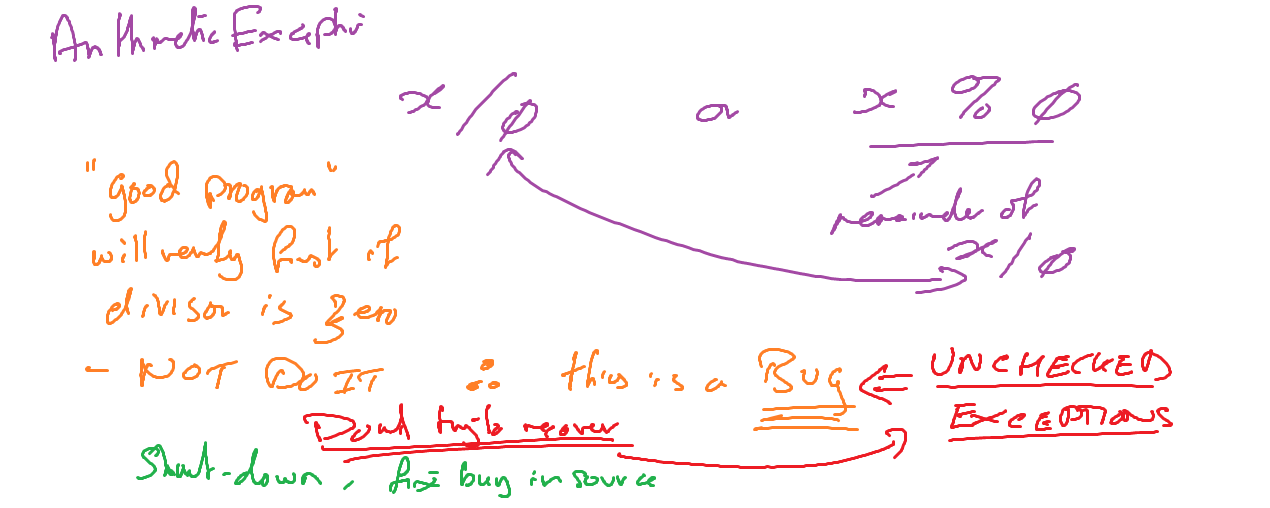 Arithmetic Excepti
x / 0 or x % 0
remainder of
x / 0
"Good program"
will verify first if
divisor is zero
- NOT DO IT ∴ this is a BUG ⇐ UNCHECKED
EXCEPTIONS
Dont try to recover
Shut-down, fix bug in source